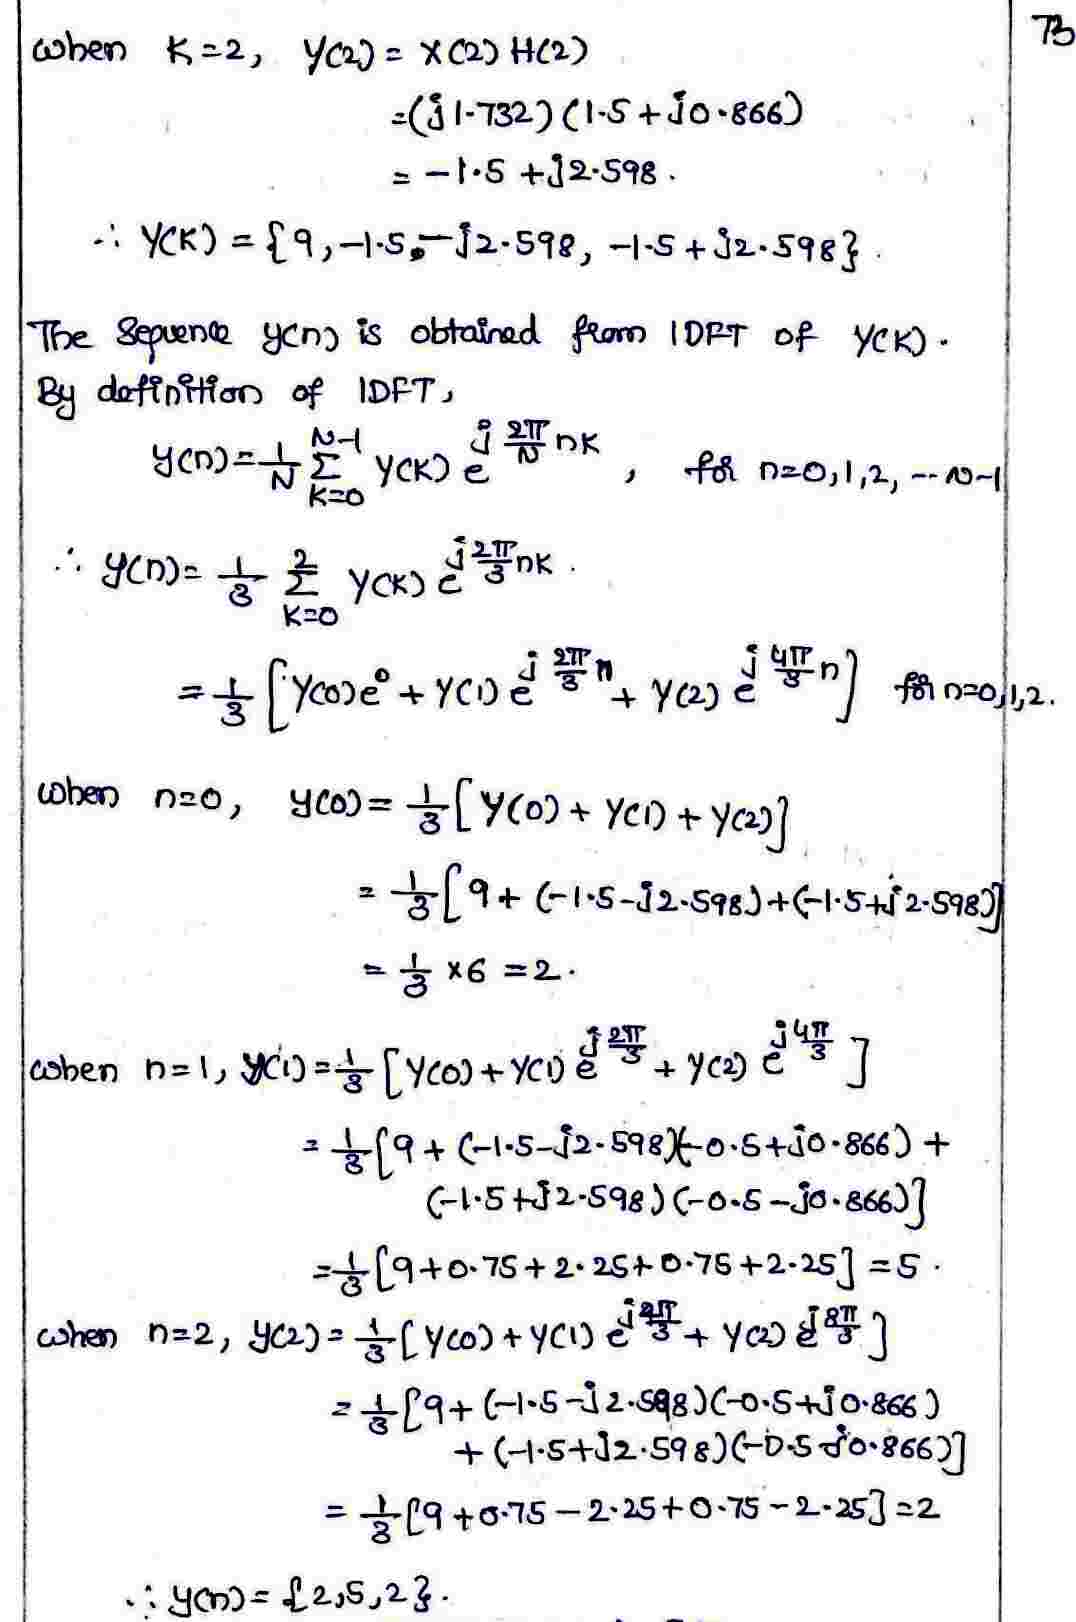 73
when K=2, Y(2) = X(2) H(2)
=(j1.732)(1.5+j0.866)
= -1.5 +j2.598.
∴ Y(K) = {9, -1.5, -j2.598, -1.5+j2.598}.
The Sequence y(n) is obtained from IDFT of Y(K).
By definition of IDFT,
y(n)= 1/N Σ_{K=0}^{N-1} Y(K) e^{j 2π/N nK}, for n=0,1,2, -- N-1
∴ y(n)= 1/3 Σ_{K=0}^{2} Y(K) e^{j 2π/3 nK}.
= 1/3 [Y(0)e^0 + Y(1) e^{j 2π/3 n} + Y(2) e^{j 4π/3 n}] for n=0,1,2.
when n=0, y(0)= 1/3 [Y(0) + Y(1) + Y(2)]
= 1/3 [9+ (-1.5-j2.598)+(-1.5+j2.598)]
= 1/3 ×6 =2.
when n=1, y(1)= 1/3 [Y(0)+Y(1) e^{j 2π/3} + Y(2) e^{j 4π/3}]
= 1/3 [9+ (-1.5-j2.598)(-0.5+j0.866) +
(-1.5+j2.598)(-0.5-j0.866)]
= 1/3 [9+0.75+2.25+0.75+2.25] =5.
when n=2, y(2)= 1/3 [Y(0)+Y(1) e^{j 4π/3} + Y(2) e^{j 8π/3}]
= 1/3 [9+ (-1.5-j2.598)(-0.5+j0.866)
+ (-1.5+j2.598)(-0.5-j0.866)]
= 1/3 [9+0.75-2.25+0.75-2.25] =2
∴ y(n)= {2,5,2}.